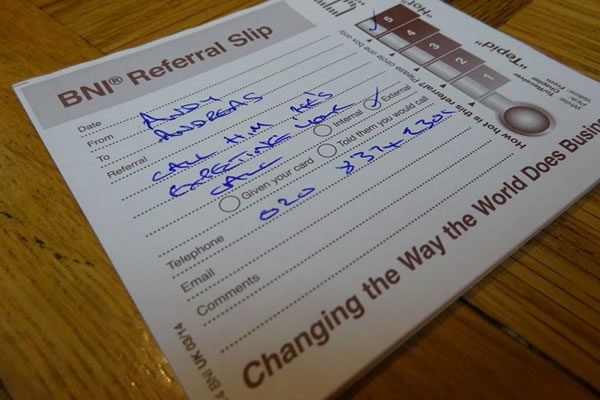 BNI® Referral Slip
Date
From ANDY
To ANDREAS
Referral CALL HIM, HE'S
Internal External
EXPECTING YOUR
CALL
Given your card Told them you would call
Telephone 020
Email
Comments
Changing the Way the World Does Busin
4 BNI UK 03/14
How hot is this referral? Please circle one box only
1 2 3 4 5
"Tepid"
"Hot
To Member
To Chapter
Yellow: From